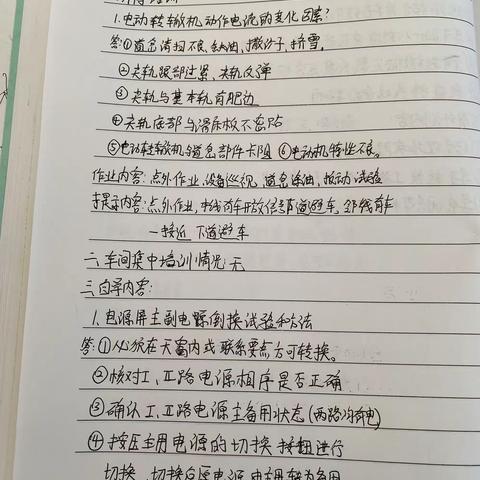 1.电动转辙机动作电流的变化因素?
答:①道岔清扫不良、缺油、撒沙子、挤雪。
②尖轨跟部过紧、尖轨反弹
③尖轨与基本轨有肥边
④尖轨底部与滑床板不密贴
⑤电动转辙机各道岔部件卡阻 ⑥电动机特性不良。
作业内容:点外作业,设备巡视,道岔涂油,扳动试验
提示内容:点外作业,本线有车开放信号道避车,邻线有车
一接近 下道避车
二、车间集中培训情况:无
三、自学内容:
1、电源屏主副电源倒换试验和方法
答:①必须在天窗内或联系要点方可转换。
②核对Ⅰ、Ⅱ路电源相序是否正确
③确认Ⅰ、Ⅱ路电源主备用状态(两路均有电)
④按压主用电源的切换按钮进行
切换,切换后原电源由主用转为备用